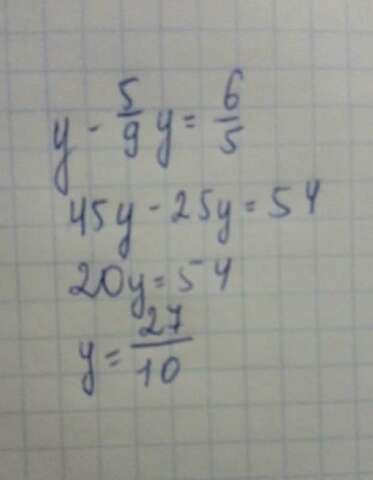 y - 5/9 y = 6/5
45y - 25y = 54
20y = 54
y = 27/10